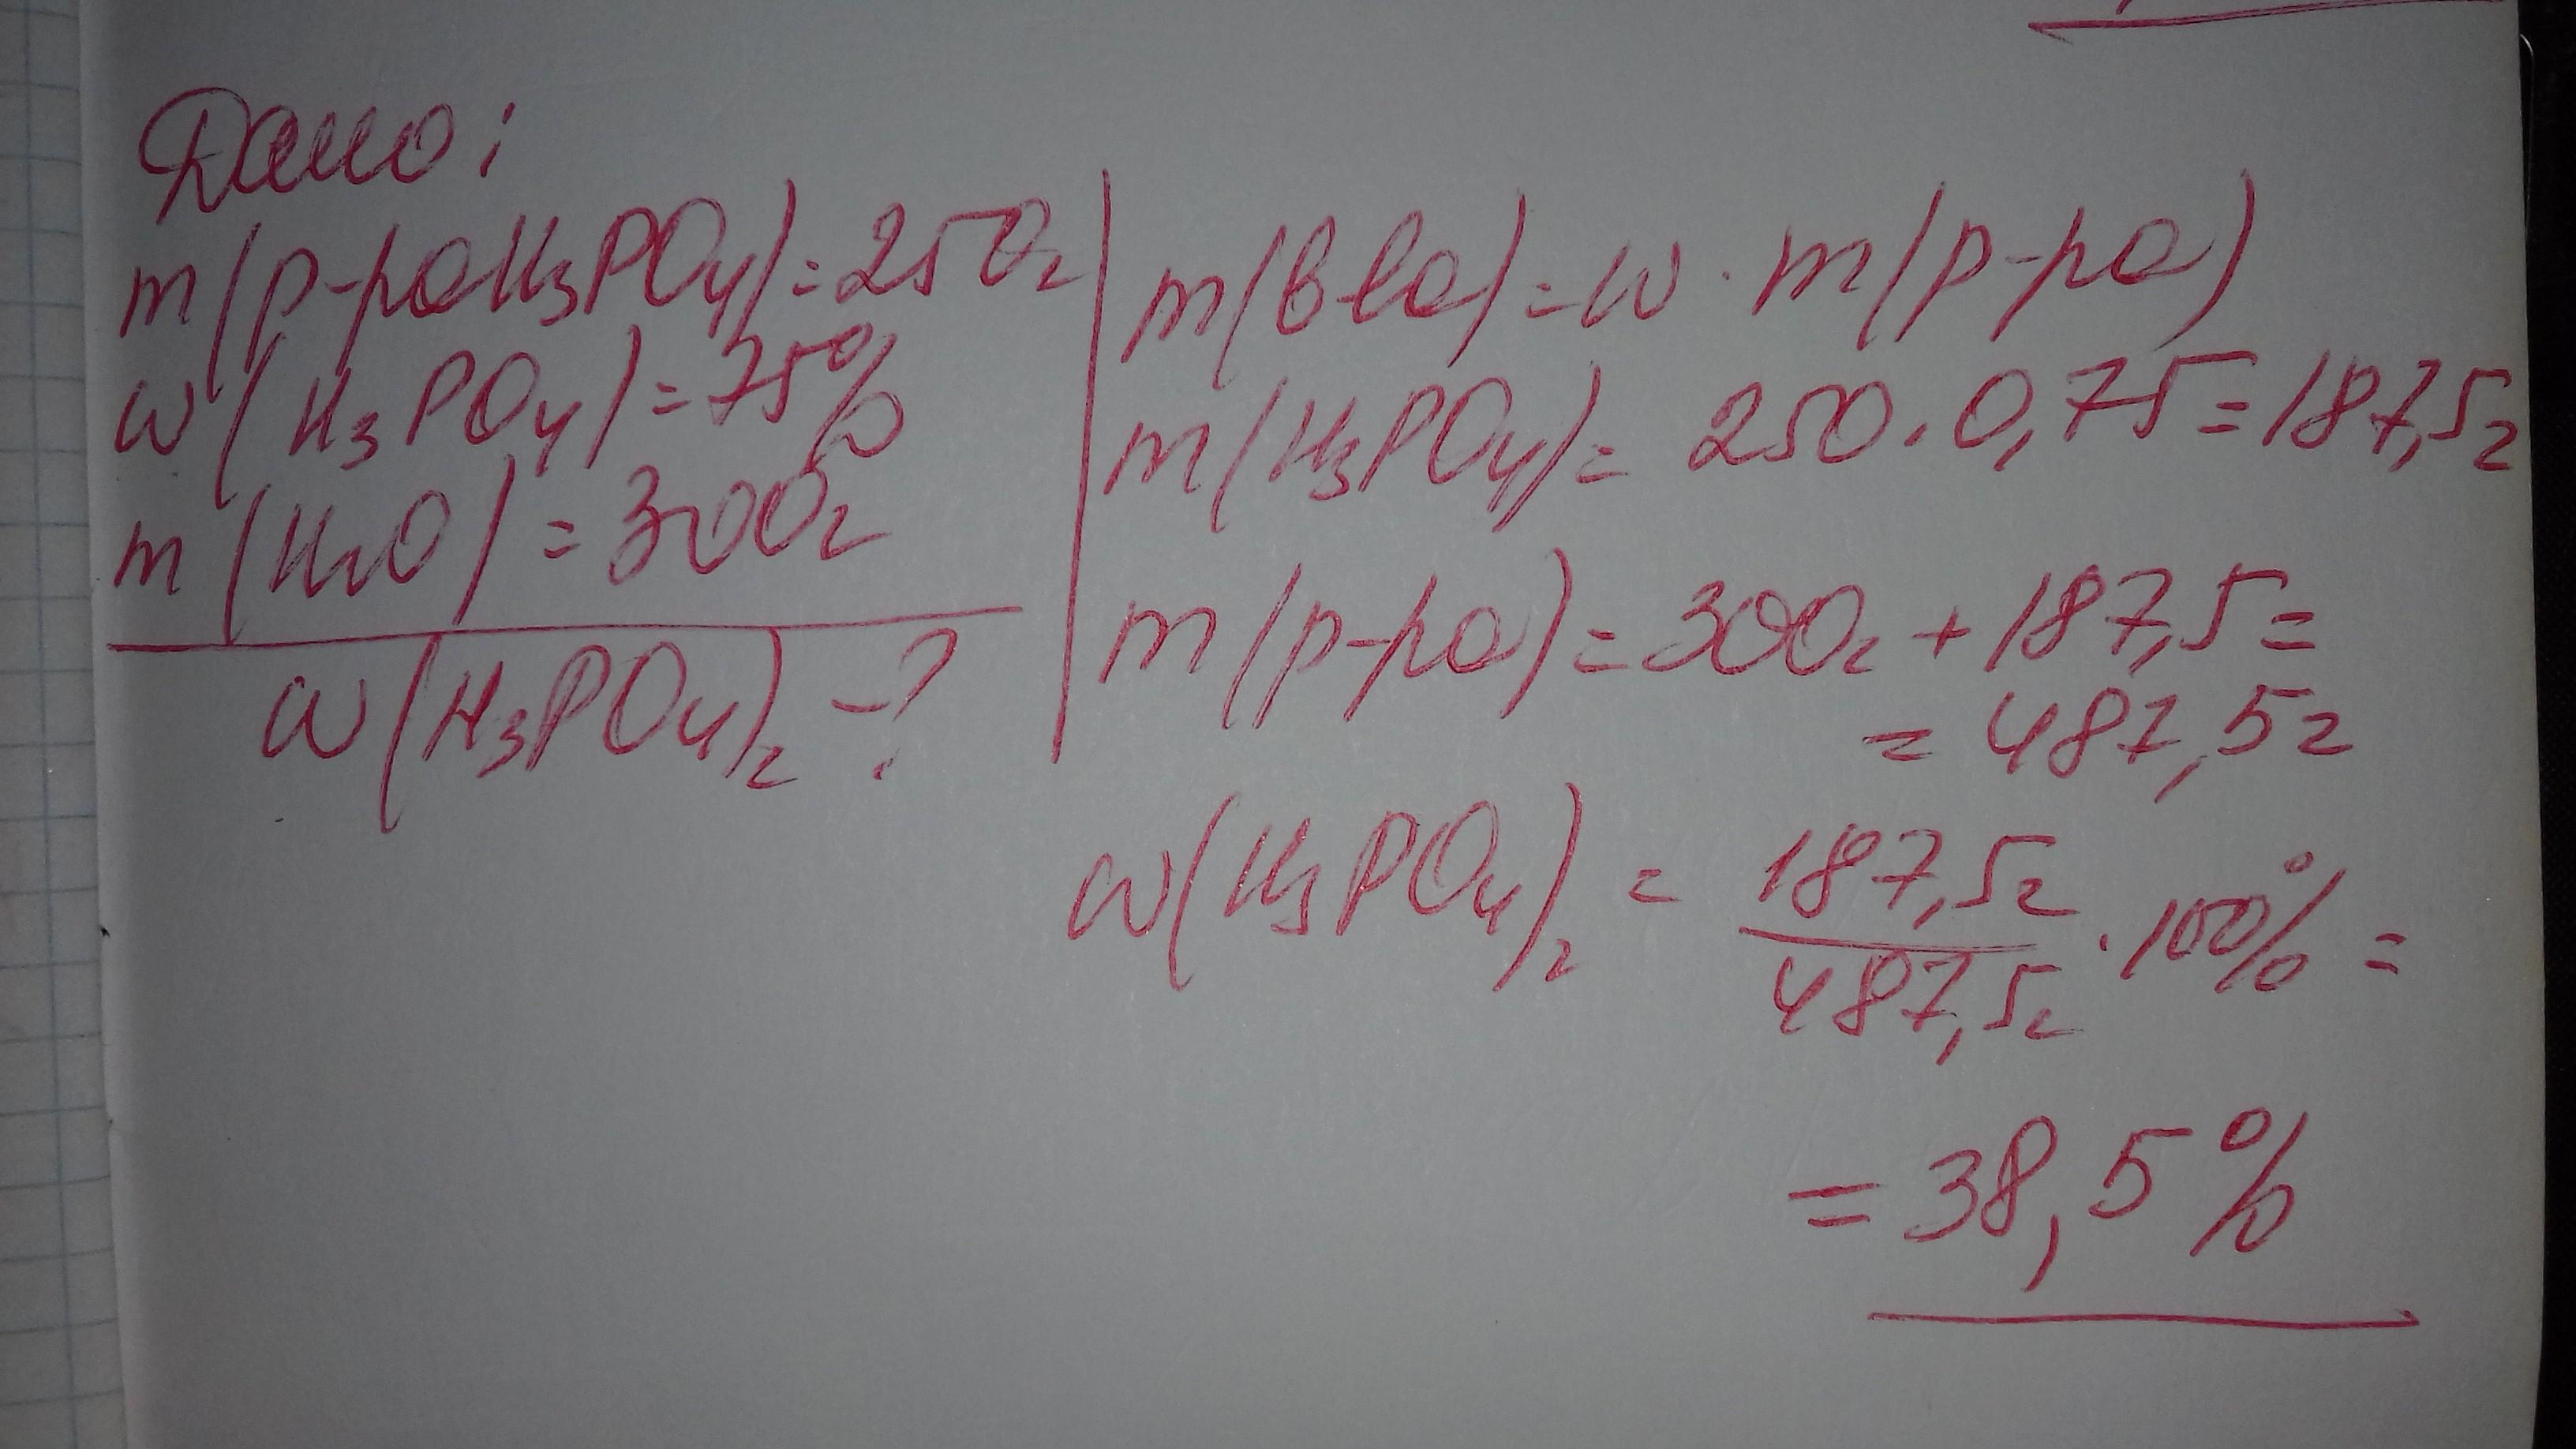 Дано:
m(р-раH₃PO₄)=250г
w(H₃PO₄)=75%
m(H₂O)=300г
w(H₃PO₄)₂-?
m(вва)=w·m(р-ра)
m(H₃PO₄)=250·0,75=187,5г
m(р-ра)=300г+187,5=
=487,5г
w(H₃PO₄)₂=187,5г/487,5г·100%=
=38,5%